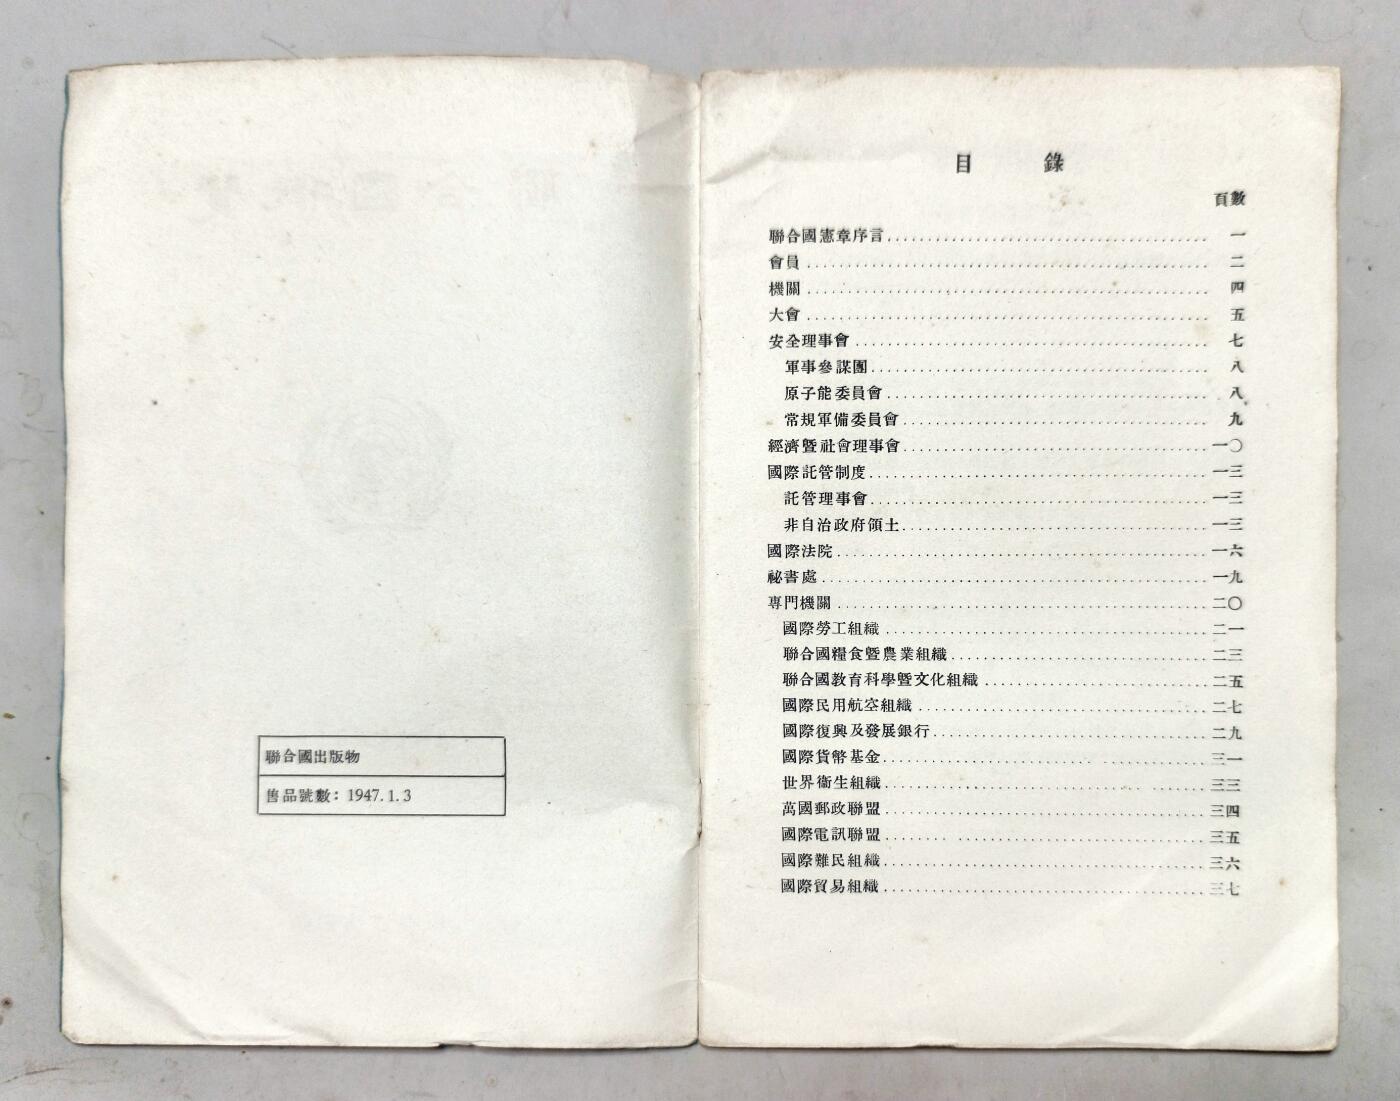 聯合國出版物
售品號數：1947.1.3
目 錄
頁數
聯合國憲章序言 一
會員 二
機關 四
大會 五
安全理事會 七
軍事參謀團 八
原子能委員會 八
常規軍備委員會 九
經濟暨社會理事會 一〇
國際託管制度 一三
託管理事會 一三
非自治政府領土 一三
國際法院 一六
祕書處 一九
專門機關 二〇
國際勞工組織 二一
聯合國糧食暨農業組織 二三
聯合國教育科學暨文化組織 二五
國際民用航空組織 二七
國際復興及發展銀行 二九
國際貨幣基金 三一
世界衞生組織 三三
萬國郵政聯盟 三四
國際電訊聯盟 三五
國際難民組織 三六
國際貿易組織 三七